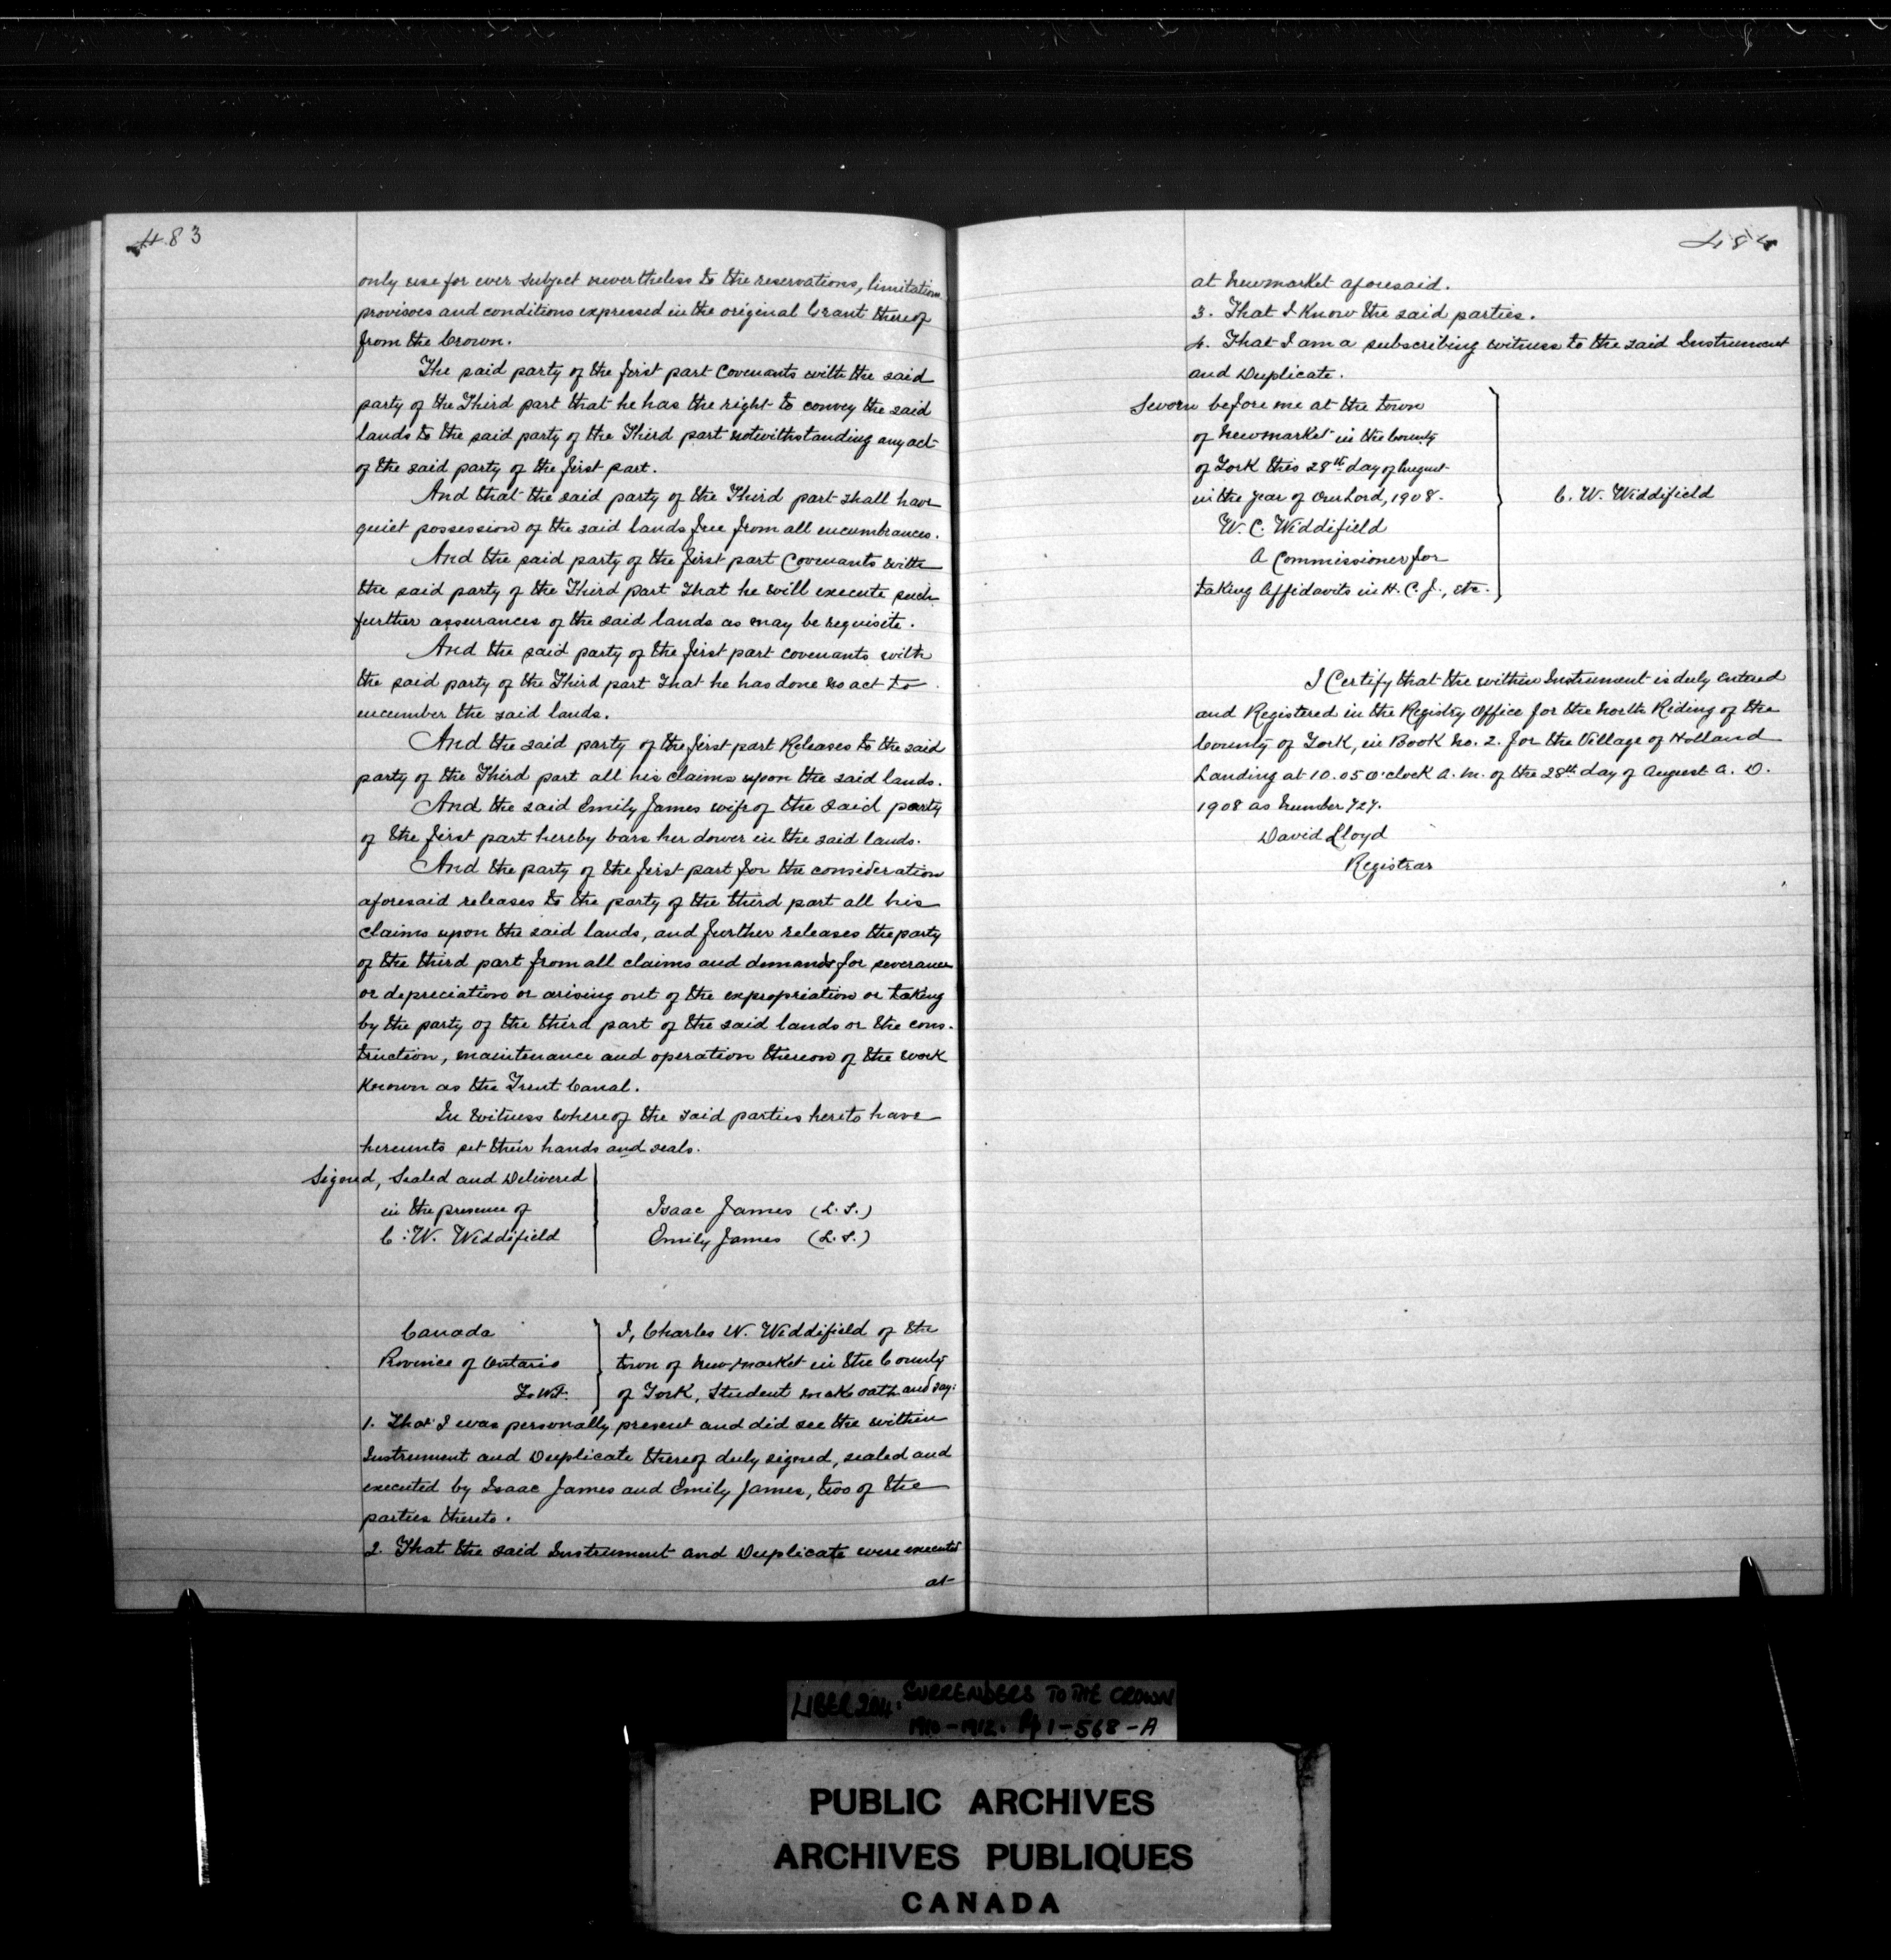 483
only use for ever subject nevertheless to the reservations, limitations
provisoes and conditions expressed in the original Grant thereof
from the Crown.
The said party of the first part Covenants with the said
party of the Third part that he has the right to convey the said
lands to the said party of the Third part notwithstanding any act
of the said party of the first part.
And that the said party of the Third part shall have
quiet possession of the said lands free from all encumbrances.
And the said party of the first part Covenants with
the said party of the Third part that he will execute such
further assurances of the said lands as may be requisite.
And the said party of the first part covenants with
the said party of the Third part that he has done no act to
encumber the said lands.
And the said party of the first part Releases to the said
party of the Third part all his claims upon the said lands.
And the said Emily James wife of the said party
of the first part hereby bars her dower in the said lands.
And the party of the first part for the consideration
aforesaid releases to the party of the third part all his
claims upon the said lands, and further releases the party
of the third part from all claims and demands for severance
or depreciation or arising out of the expropriation or taking
by the party of the third part of the said lands or the cons-
truction, maintenance and operation thereon of the work
known as the Trent Canal.
In witness whereof the said parties hereto have
hereunto set their hands and seals.
Signed, Sealed and Delivered
in the presence of
C. W. Widdifield
Isaac James (L.S.)
Emily James (L.S.)
Canada
Province of Ontario
To Wit:
I, Charles W. Widdifield of the
town of Newmarket in the County
of York, Student make oath and say:
1. That I was personally present and did see the within
Instrument and Duplicate thereof duly signed, sealed and
executed by Isaac James and Emily James, two of the
parties thereto.
2. That the said Instrument and Duplicate were executed
at
484
at Newmarket aforesaid.
3. That I know the said parties.
4. That I am a subscribing witness to the said Instrument
and Duplicate.
Sworn before me at the town
of Newmarket in the County
of York this 28th day of August
in the year of Our Lord, 1908.
W. C. Widdifield
A Commissioner for
taking Affidavits in H. C. J., etc.
C. W. Widdifield
I Certify that the within Instrument is duly entered
and Registered in the Registry Office for the North Riding of the
County of York, in Book No. 2. for the Village of Holland
Landing at 10.05 o'clock A. M. of the 28th day of August A. D.
1908 as Number 727.
David Lloyd
Registrar
LIBER 204: SURRENDERS TO THE CROWN
1910-1912. Pp 1-568-A
PUBLIC ARCHIVES
ARCHIVES PUBLIQUES
CANADA